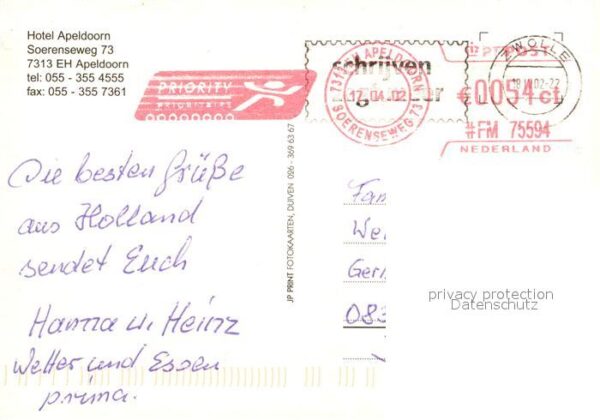 Hotel Apeldoorn
Soerenseweg 73
7313 EH Apeldoorn
tel: 055 - 355 4555
fax: 055 - 355 7361
PRIORITY
PRIORITAIRE
schrijven
7313 EH APELDOORN
17.04.02
SOERENSEWEG 73
TPG POST
€0054 ct
#FM 75594
NEDERLAND
ZWOLLE
Die besten Grüße
aus Holland
sendet Euch
Hanna u. Heinz
Wetter und Essen
prima.
JP PRINT FOTOKAARTEN, DUIVEN 026 - 369 63 67
Fam
We
Ger
083
privacy protection
Datenschutz